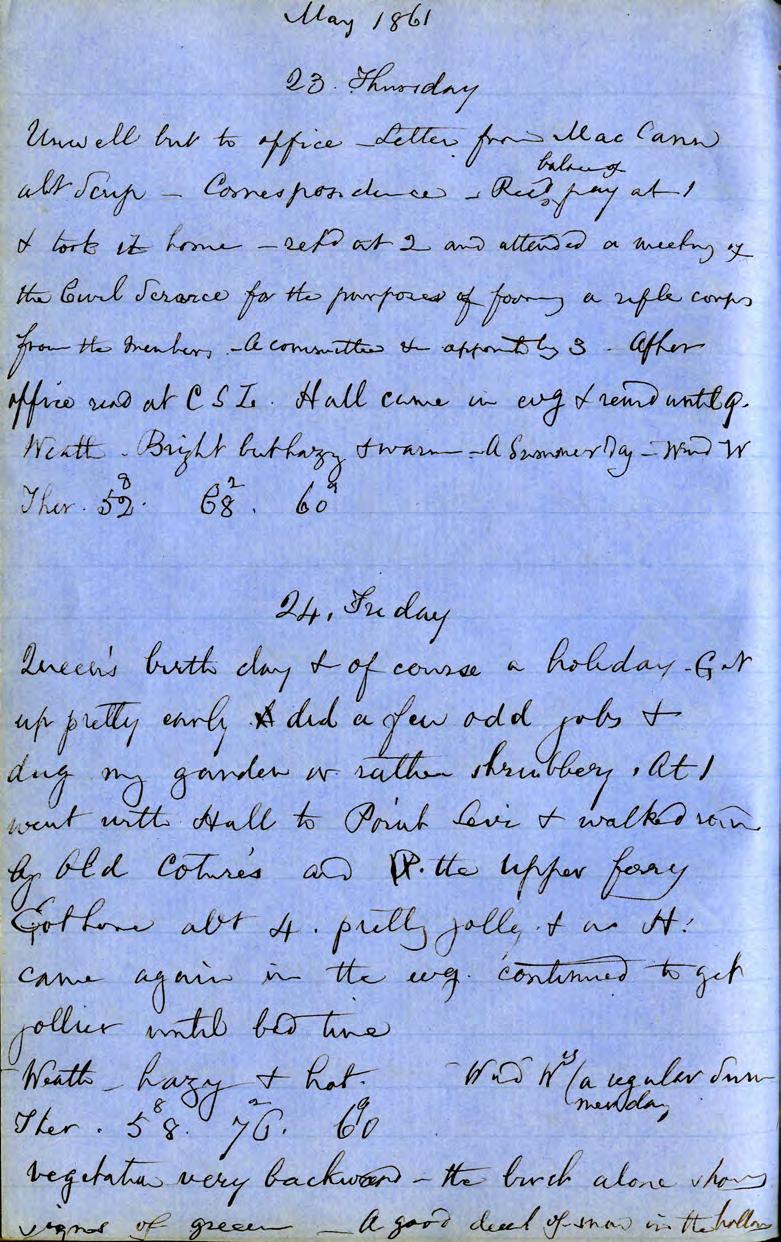 May 1861
23. Thursday
Unwell but to office – Letter from Mac Cann
abt Scrip – Correspondence – Recd balance of pay at 1
& took it home – retd at 2 and attended a meeting of
the Civil Service for the purposes of forming a rifle corps
from the members. – A committee appointed by 3 – After
office read at C S I. Hall came in evg & remd until 9.
Weath – Bright but hazy & warm – A Summer Day – Wind W
Ther. 52 8. 68 2. 60 9
24. Friday
Queen's birth day & of course a holiday – Got
up pretty early & did a few odd jobs &
dug my garden or rather shrubbery. At 1
went with Hall to Point Levi & walked round
by Old and the upper ferry
Got home abt 4. pretty jolly & as H.
came again in the evg. continued to get
jollier until bed time
Weath – hazy & hot. – Wind W (a regular Sum-
mer day
Ther. 58 8. 76 2. 60 9
Vegetation very backward – the birch alone shows
signs of green – A good deal of snow in the hollows